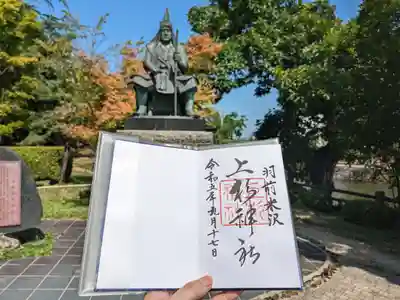 羽前米沢
上杉神社
令和五年九月十七日